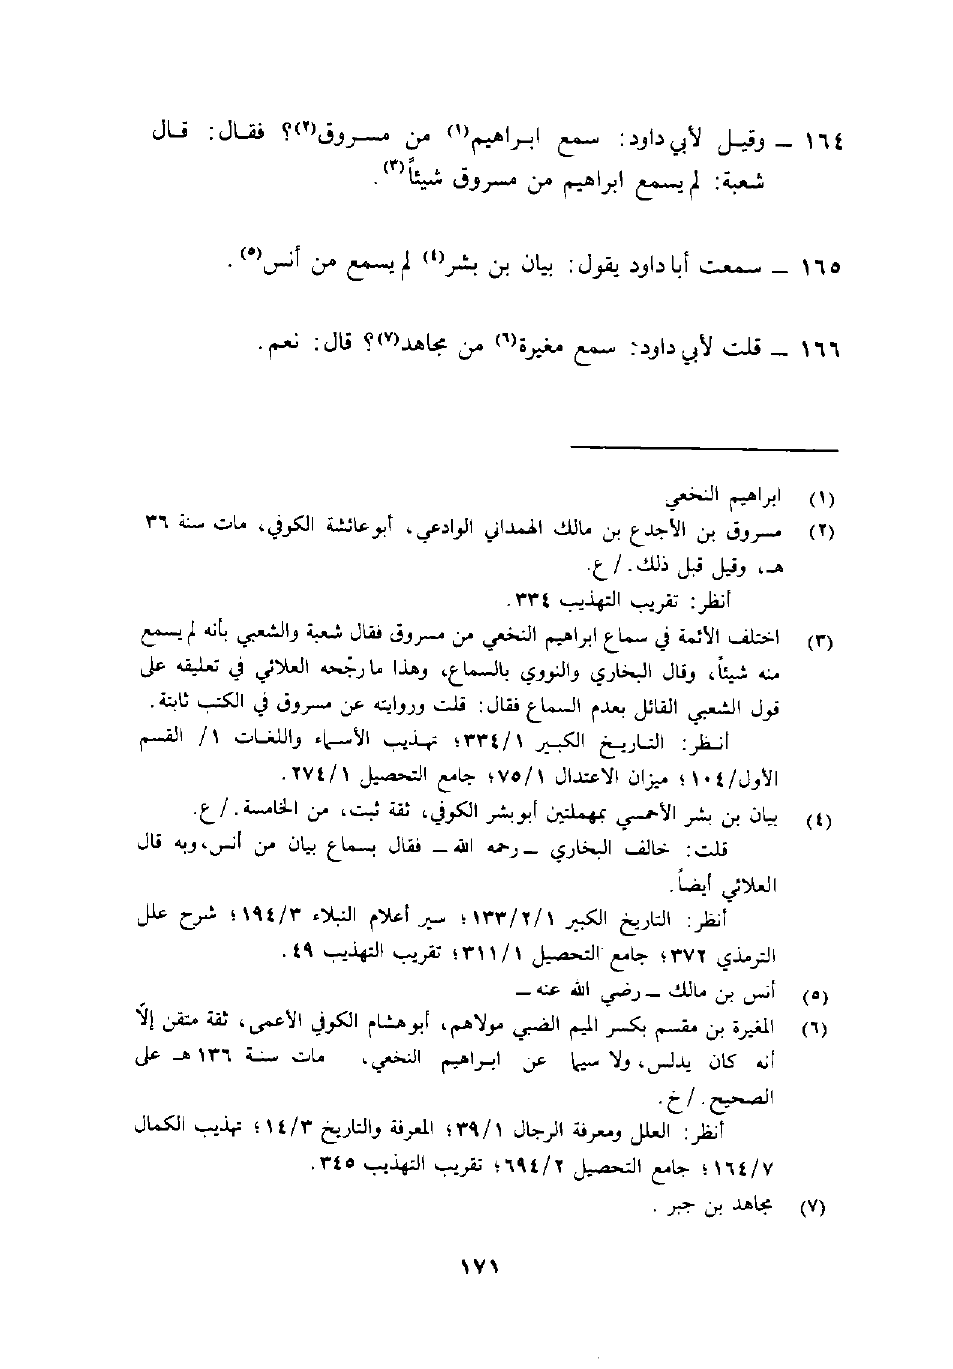 ١٦٤ ــ وقيل لأبي داود: سمع ابراهيم(١) من مسروق(٢)؟ فقال: قال
شعبة: لم يسمع ابراهيم من مسروق شيئاً(٣).
١٦٥ ــ سمعت أبا داود يقول: بيان بن بشر(٤) لم يسمع من أنس(٥).
١٦٦ ــ قلت لأبي داود: سمع مغيرة(٦) من مجاهد(٧)؟ قال: نعم.
(١) ابراهيم النخعي
(٢) مسروق بن الأجدع بن مالك الهمداني الوادعي، أبو عائشة الكوفي، مات سنة ٣٦
هـ، وقيل قبل ذلك. / ع.
أنظر: تقريب التهذيب ٣٣٤.
(٣) اختلف الأئمة في سماع ابراهيم النخعي من مسروق فقال شعبة والشعبي بأنه لم يسمع
منه شيئاً، وقال البخاري والنووي بالسماع، وهذا ما رجّحه العلائي في تعليقه على
قول الشعبي القائل بعدم السماع فقال: قلت وروايته عن مسروق في الكتب ثابتة.
أنظر: التاريخ الكبير ٣٣٤/١؛ تهذيب الأسماء واللغات ١/ القسم
الأول/١٠٤؛ ميزان الاعتدال ٧٥/١؛ جامع التحصيل ٢٧٤/١.
(٤) بيان بن بشر الأحمسي بمهملتين أبو بشر الكوفي، ثقة ثبت، من الخامسة. / ع.
قلت: خالف البخاري ــ رحمه الله ــ فقال بسماع بيان من أنس، وبه قال
العلائي أيضاً.
أنظر: التاريخ الكبير ١٣٣/٢/١؛ سير أعلام النبلاء ١٩٤/٣؛ شرح علل
الترمذي ٣٧٢؛ جامع التحصيل ٣١١/١؛ تقريب التهذيب ٤٩.
(٥) أنس بن مالك ــ رضي الله عنه ــ
(٦) المغيرة بن مقسم بكسر الميم الضبي مولاهم، أبو هشام الكوفي الأعمى، ثقة متقن إلاّ
أنه كان يدلس، ولا سيما عن ابراهيم النخعي، مات سنة ١٣٦ هـ على
الصحيح. / خ.
أنظر: العلل ومعرفة الرجال ٣٩/١؛ المعرفة والتاريخ ١٤/٣؛ تهذيب الكمال
١٦٤/٧؛ جامع التحصيل ٦٩٤/٢؛ تقريب التهذيب ٣٤٥.
(٧) مجاهد بن جبر.
١٧١